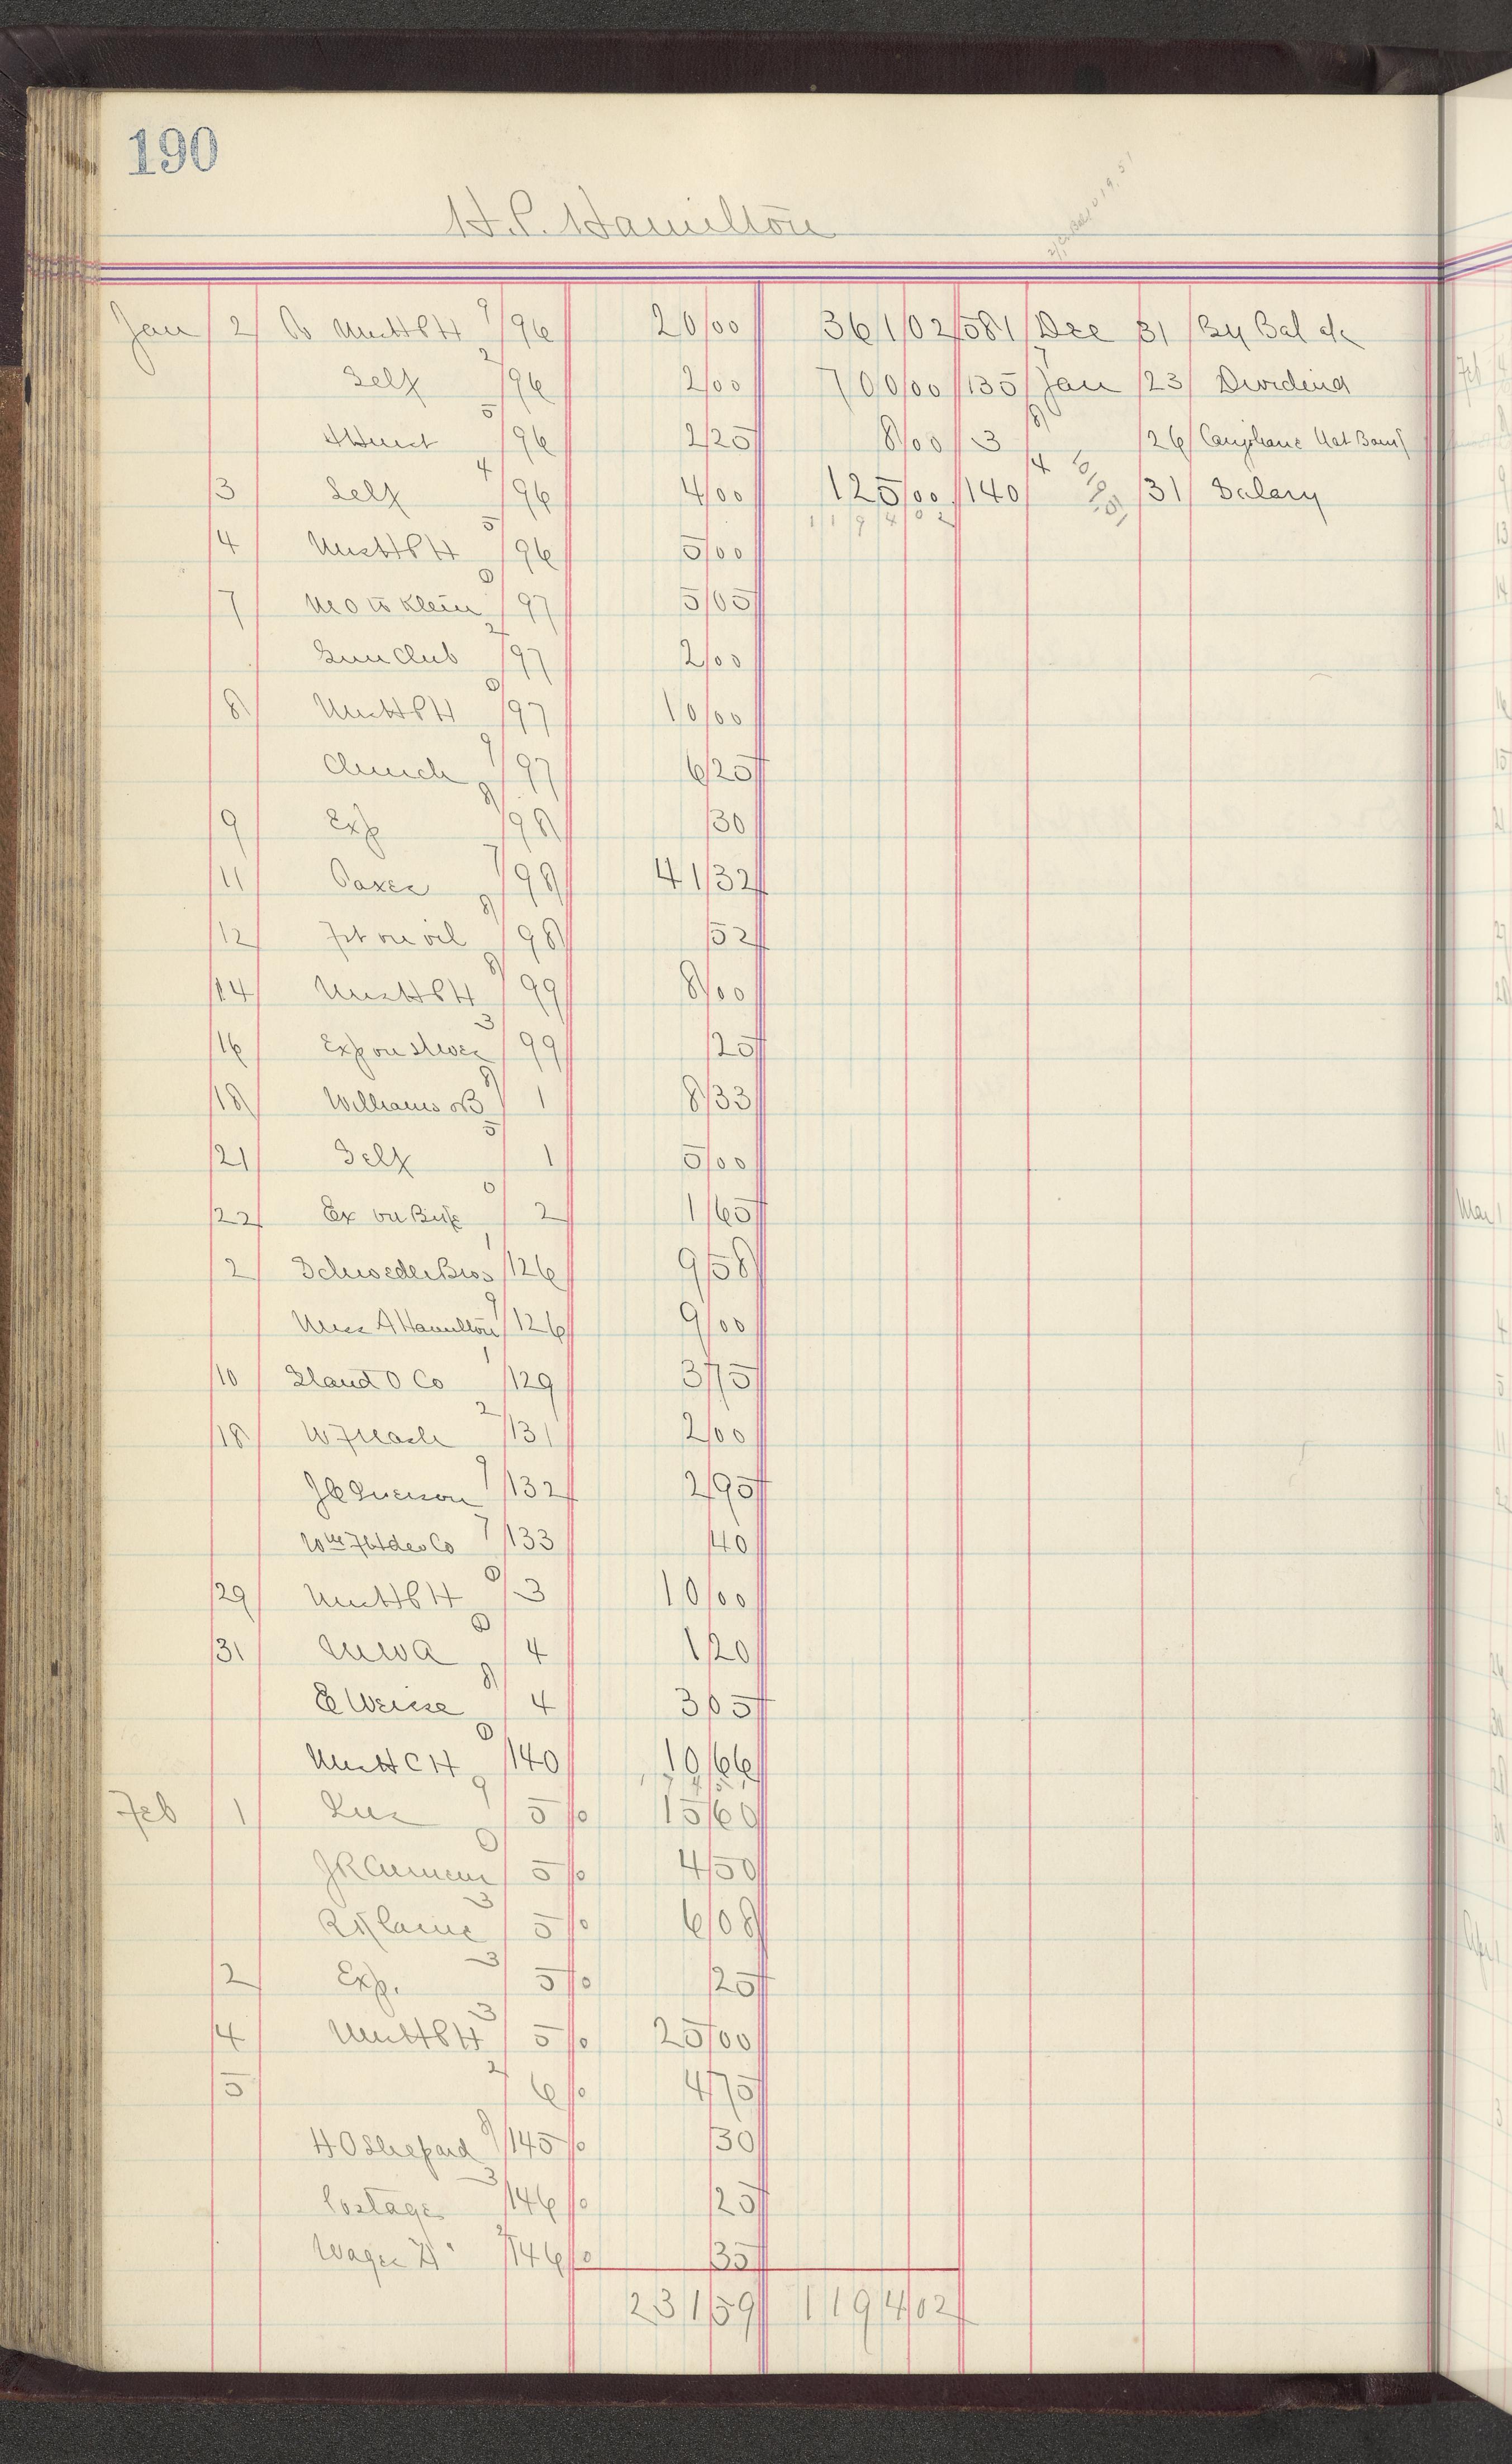 190
H.P. Hamilton
Jan 2 To Mrs H P H 9/96 20 00 361 02 581 Dec 31 By Bal
Self 2/96 2 00 700 00 135 Jan 23 Dividend
5/96 2 25 8 00 3 26 Nat Bank
3 Self 4/96 4 00 125 00 140 31 Salary
1194 02 1019.51
4 Mrs H P H 5/96 5 00
7 M O to Klein 0/97 5 05
Gun Club 2/97 2 00
8 Mrs H P H 0/97 10 00
Church 9/97 6 25
9 Exp 8/98 30
11 Taxes 7/98 41 32
12 Frt on oil 8/98 52
14 Mrs H P H 8/99 8 00
16 Exp on shoes 3/99 25
18 Williams & B 8/1 8 33
21 Self 5/1 5 00
22 Ex on 0/2 1 65
2 Schroeder Bros 1/126 9 58
Miss A Hamilton 9/126 9 00
10 Stand O Co 1/129 3 75
18 W F Nash 2/131 2 00
9/132 2 95
Co 7/133 40
29 Mrs H P H 0/3 10 00
31 0/4 1 20
E Weisse 8/4 3 05
Mrs H C H 0/140 10 66
Feb 1 Ins 9/5 15 60
J R 0/5 4 50
3/5 6 08
2 Exp. 3/5 25
4 Mrs H P H 3/5 25 00
5 2/6 4 75
H O Shepard 8/145 30
Postage 3/146 25
146 35
231 59 1194 02